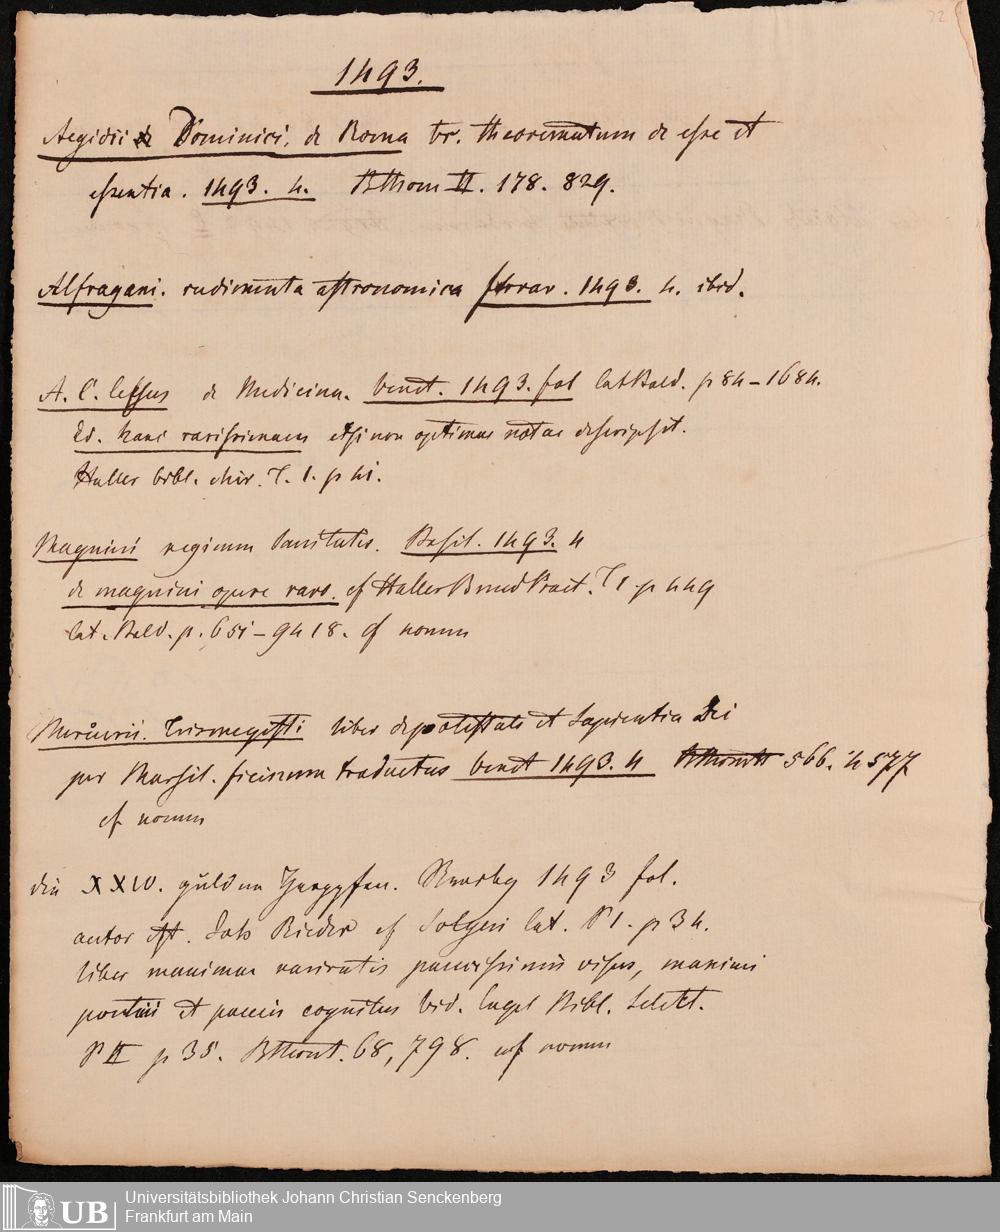 72
1493.
Aegidii Dominici. de Roma tr. theorematum de esse et
essentia. 1493. 4. II. 178. 829.
Alfragani. rudimenta astronomica ferrar. 1493. 4. ibid.
A. C. Celsus de Medicina. Venet. 1493. fol Cat Bald. p 84-1684.
Ed. hanc rarissimam etsi non optimae notae descripsit.
Haller bibl. chir. T. 1. p 41.
Magnini regimen Sanitatis. Basil. 1493. 4
de magnini opere raro. cf Haller B med Pract. T 1. p 449
Cat. Bald. p. 651-9418. cf
Mercurii. Trismegisti liber de potestate et Sapientia Dei
per Marsil. ficinum traductus Venet 1493. 4 566. 4577
cf
die XXIV. gulden Harpffen. 1493 fol.
autor est. cf Solgeri Cat. P 1. p 34.
liber maximae raritatis paucissimis visus, maximi
pretii et paucis cognitus vid. Engel Bibl. Select.
P II p 35. 68, 798. cf
UB
Universitätsbibliothek Johann Christian Senckenberg
Frankfurt am Main